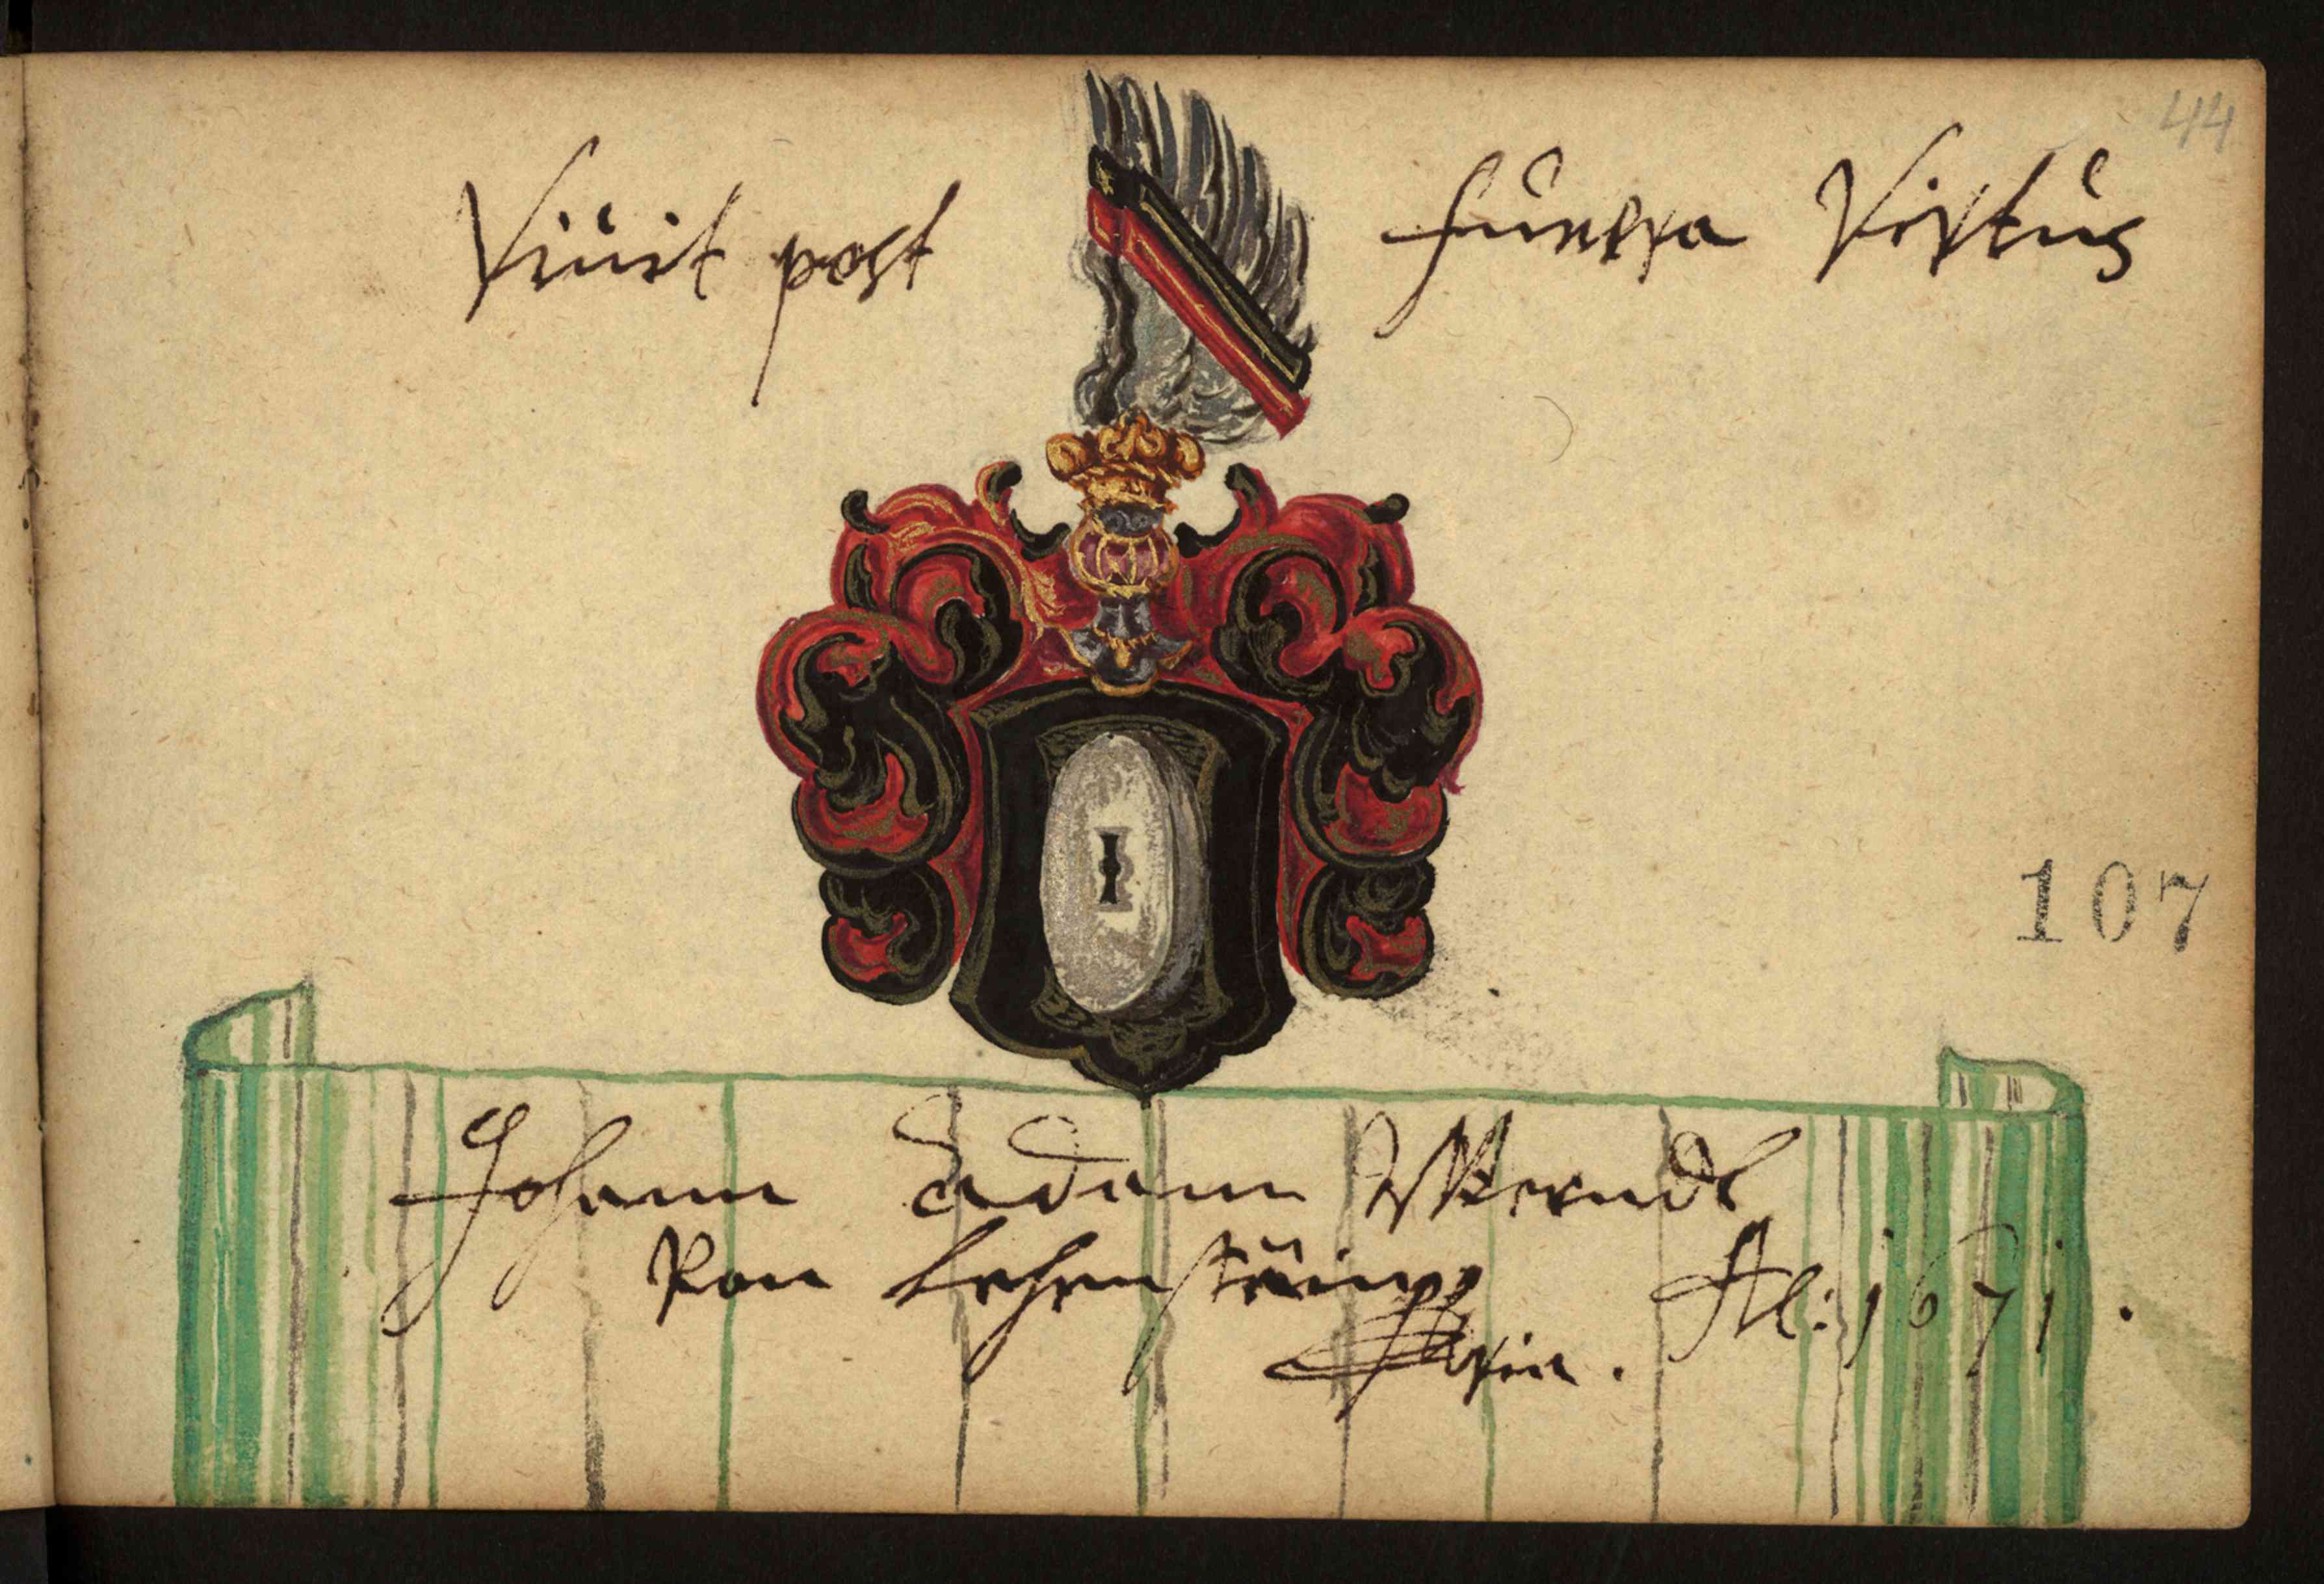 44
Viuit post funera Virtus
107
Johann Adam Werndl
Von Lehenstäin
Ao: 1671.